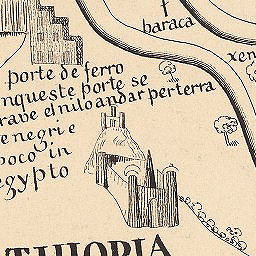 baraca
xen
porte de ferro
nqueste porte se
rave el nilo andar per terra
e negri e
poco in
egypto
THIOPIA